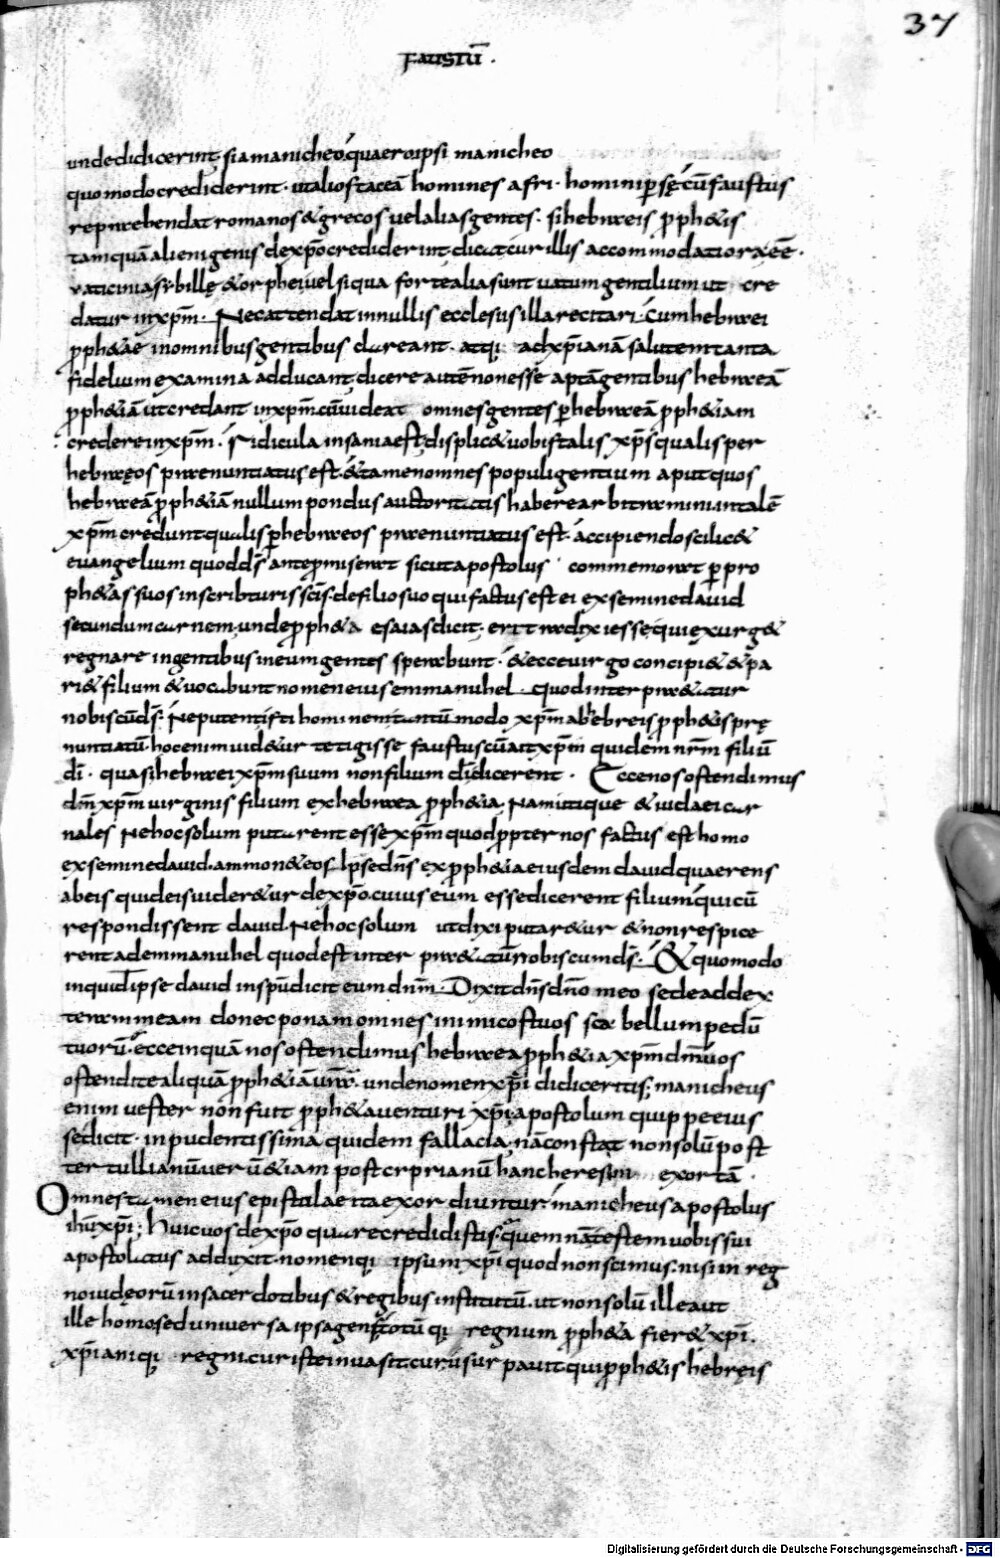 37
FAUSTŪ ·
undedidicerint· siamanicheo quaeroipsi manicheo
quomodocrediderint· utalioſtaceā homines afri· hominip̄ sę cū fauſtus
reprehendat romanos & grecos uelaliasgentes· sihebreis ꝓph&is
tamquā alienigenis dexp̄ocrediderint dicatcur illis accommodatiora eē·
vaticinia sybillę & orpheiuelsiqua fortealiasunt uatumgentilium ut cre
datur inxp̄m· Necattendat innullis ecclesiis illa recitari· cumhebrei
ꝓph&ae inomnibusgentibus clareant· atq; adxp̄ianā salutemtanta
fidelium examina adducant· dicere autē nonesse aptā gentibus hebreā
ꝓph&iā utcredant inxp̄m· cū uideat omnesgentes p̄ hebreā ꝓph&iam
credereinxp̄m· Ridicula insaniaeſt displic&uobistalis xp̄s qualisper
hebręos prenuntiatus eſt· & tamenomnes populigentium aputquos
hebreā ꝓph&iā nullum pondus auctoritatis habere arbitraminitalē
xp̄m creduntqualis p̄ hebreos prenuntiatus eſt· accipiendoscilic&
euangelium quodd̄s antepmiserat sicutapoſtolus commemorat p̄ pro
ph&as suos inscribturis sc̄is· defiliosuo quifactus eſt ei exseminedauid
secundumcarnem· undeꝓph&a esaiasdicit· erit radix iesse qui exurg&
regnare ingentibus ineumgentes sperabunt· & ecceuirgo concipi& & pa
ri& filium & uocabunt nomeneius emmanuhel quodinterpr&atur
nobiscūd̄s· Neputentiſti hominemtantūmodo xp̄m abhebreis ꝓph&isprę
nuntiatū· hocenimuid&ur tetigisse fauſtuscū ait xp̄m quidem nr̄m filiū
dī· quasihebrei xp̄msuum nonfilium dī dicerent· Eccenosoſtendimus
dn̄m xp̄m uirginis filium exhebrea ꝓph&ia· Namitique & iudaei car
nales Nehocsolum putarent esse xp̄m quodꝓpter nos factus eſt homo
exseminedauid· ammon& eos Ipsedn̄s exꝓph&iaeiusdem dauidquaerens
abeis quideisuider&ur dexp̄o cuius eum essedicerent filium quicū
respondissent dauid· Nehocsolum utdixi putar&ur & nonrespice
rentademmanuhel quodeſt interpr&atū nobiscumd̄s· & quomodo
inquid ipse dauid insp̄udicit eum dn̄m· Dixitdn̄sdn̄o meo sedeaddex
teram meam donecponamomnes inimicoſtuos sca bellumpedū
tuorū· ecceinquā nosoſtendimus hebrea ꝓph&ia xp̄m dn̄m uos
oſtenditealiquā ꝓph&iā ur̄am· undenomenxp̄i didiceritis; manicheus
enim ueſter nonfuit ꝓph&auenturi xp̄i· apoſtolum quippeeius
sedicit· inpudentissima quidem fallacia· nāconſtat nonsolū poſt
tertullianū uerū & iam poſt cyprianū hancheresim exortā·
Omnestameneius epiſtulae itaexordiuntur· manicheus apoſtolus
ihū xp̄i; Huicuos dexp̄o quarecredidiſtis· quem nā teſtemuobissui
apoſtolatus adduxit· nomenq; ipsumxp̄i quodnonscimus· nisiin reg
noiudęorū insacerdotibus & regibus inſtitutū· utnonsolū illeaut
ille homosed uniuersa ipsagens totū q; regnum ꝓph&a fier& xp̄i·
xp̄ianiq; regni· curiſteinuasit· curusurpauit quiꝓph&is hebręis
Digitalisierung gefördert durch die Deutsche Forschungsgemeinschaft - DFG